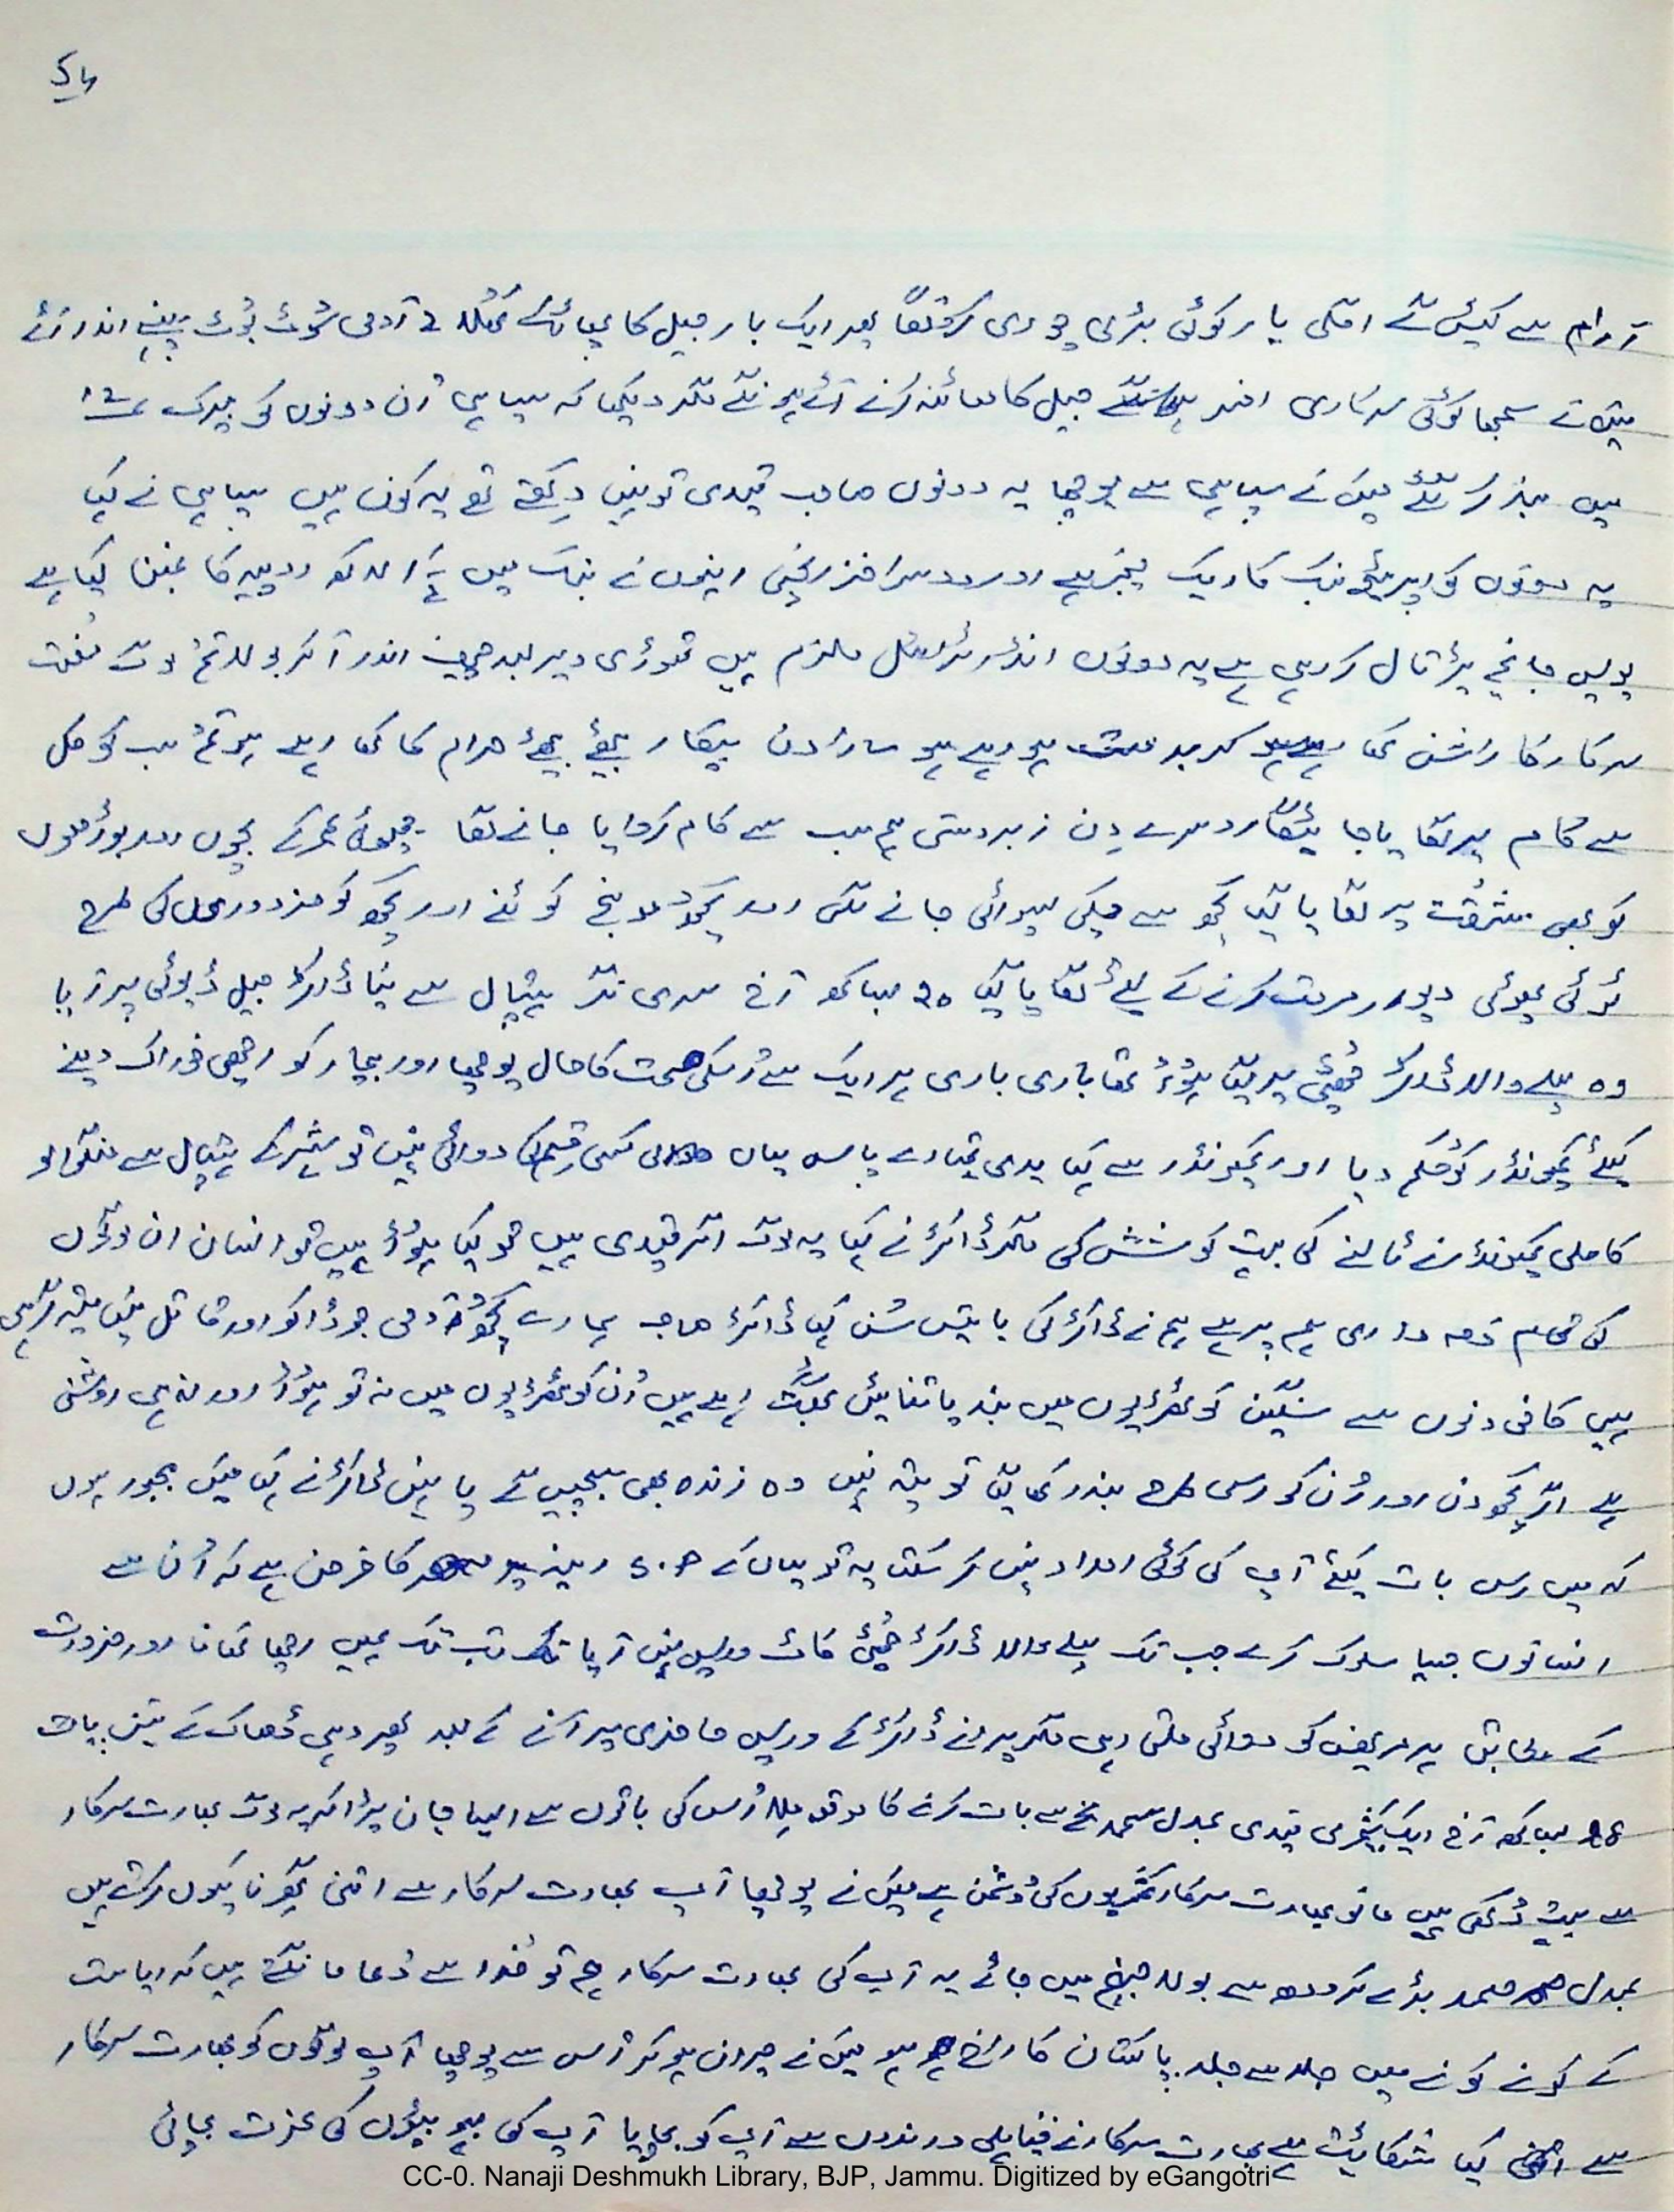 آرام سے کہیں گے اگلی بار کوئی بڑی چوری کرونگا پھر ایک بار جیل کا پھاٹک کھلا 2 آدمی سُوٹ بُوٹ پہنے اندر آئے
میں نے سمجھا کوئی سرکاری افسر ہونگے جیل کا معائنہ کرنے آئے ہونگے مگر دیکھا کہ سپاہی اُن دونوں کو بیرک
میں بند کر گئے میں نے سپاہی سے پوچھا یہ دونوں صاحب قیدی تو نہیں دِکھتے تھے یہ کون ہیں سپاہی نے کہا
یہ دونوں کواپریٹو بنک کا ایک منیجر ہے اور دوسرا خزانچی اِنہوں نے بنک میں لاکھ روپیہ کا غبن کیا ہے
پولیس جانچ پڑتال کر رہی ہے یہ دونوں انڈر ٹرائل ملزم ہیں تھوڑی دیر بعد چیف اندر آ کر بولا تُم لوگ مُفت
سرکار کا راشن کھا کر بدمست ہو رہے ہو سارا دن بیکار بیٹھے بیٹھے حرام کا کھا رہے ہو تُم سب کو کل
سے کام پر لگایا جائیگا دوسرے دِن زبردستی ہم سب سے کام کروایا جانے لگا چھوٹی عمر کے بچوں اور بوڑھوں
کو بھی مشقت پر لگایا گیا کچھ سے چکی پسوائی جانے لگی اور کچھ کو اور کچھ کو مزدوروں کی طرح
ٹوٹی پھوٹی دیوار مرمت کرنے کے لئے لگایا گیا 20 بیساکھ آج سری نگر ہسپتال سے نیا ڈاکٹر جیل ڈیوٹی پر آیا
وہ پہلے والا ڈاکٹر چُھٹی پر گیا ہُوا تھا باری باری ہر ایک سے اُسکی صحت کا حال پوچھا اور بیمار کو اچھی خوراک دینے
کیلئے کمپونڈر کو حُکم دیا اور کمپونڈر سے کہا یدی تمہارے پاس یہاں کسی قِسم کی دوائی نہیں تو شہر کے ہسپتال سے منگوا لو
کاہلی کمپونڈر نے ٹالنے کی بہت کوشش کی مگر ڈاکٹر نے کہا یہ لوگ اگر قیدی ہیں تو کیا ہُوا ہیں تو انسان ان لوگوں
کی تمام ذمہ داری ہم پر ہے ہم نے ڈاکٹر کی باتیں سُن کہا ڈاکٹر صاحب ہمارے کچھ آدمی جو ڈاکو اور قاتل نہیں
ہیں کافی دنوں سے سنگین کوٹھڑیوں میں بند یاتنائیں بھگت رہے ہیں اُن کوٹھڑیوں میں نہ تو ہَوا اور نہ ہی روشنی
ہے اگر کچھ دن اور اُن کو اسی طرح بند رکھا گیا تو پتہ نہیں وہ زندہ بھی بچیں گے یا نہیں ڈاکٹر نے کہا میں مجبور ہوں
کہ میں اِس بات کیلئے آپ کی کوئی امداد نہیں کر سکتا یہ تو یہاں کے کا فرض ہے کہ اُن سے
انسانوں جیسا سلوک کرے جب تک پہلے والا ڈاکٹر چُھٹی کاٹ واپس نہیں آیا تب تک ہمیں اچھا کھانا اور ضرورت
کے مطابق ہر مریض کو دوائی ملتی رہی مگر پرانے ڈاکٹر کے واپس حاضری پر آنے کے بعد پھر وہی ڈھاک کے تین پات
28 بیساکھ آج ایک کشمیری قیدی عبدل صمد سے بات کرنے کا موقعہ مِلا اُس کی باتوں سے ایسا جان پڑا کہ یہ لوگ بھارت سرکار
سے بہت دُکھی ہیں مانو بھارت سرکار کشمیریوں کی دُشمن ہے میں نے پوچھا آپ بھارت سرکار سے اتنی گھرنا کیوں کرتے ہیں
عبدل صمد بڑے کرودھ سے بولا جہنم میں جائے یہ آپ کی بھارت سرکار ہم تو خُدا سے دُعا مانگتے ہیں کہ ریاست
کے کونے کونے میں جلد سے جلد پاکستان کا راج ہو میں نے حیران ہو کر اُس سے پوچھا آپ لوگوں کو بھارت سرکار
سے کیا شکائیت ہے بھارت سرکار نے قبایلی درندوں سے آپ کو بچایا آپ کی بہو بیٹیوں کی عزت بچائی
CC-0. Nanaji Deshmukh Library, BJP, Jammu. Digitized by eGangotri